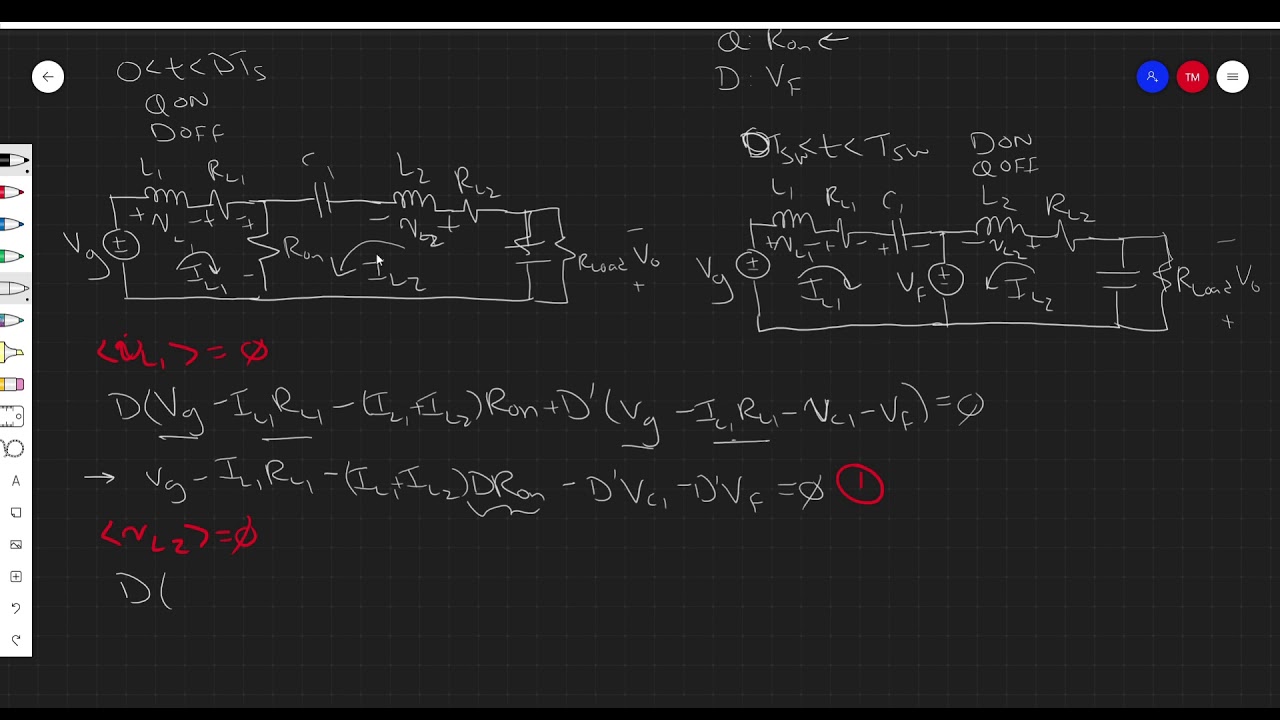 Q: Ron ←
D: VF
0<t<DTs
Q ON
D OFF
L1 RL1 C1 L2 RL2
+ VL1 - + - +
- VL2 +
Vg
Ron
IL1
IL2
RLoad
- Vo +
DTsw<t<Tsw
D ON
Q OFF
L1 RL1 C1 L2 RL2
+ VL1 - + - +
- VL2 +
Vg
IL1
VF
IL2
RLoad
- Vo +
D(Vg - IL1RL1 - (IL1+IL2)Ron + D'(Vg - IL1RL1 - VC1 - VF) = Ø
→ Vg - IL1RL1 - (IL1+IL2)DRon - D'VC1 - D'VF = Ø ①
<vL2> = Ø
D(
TM
A